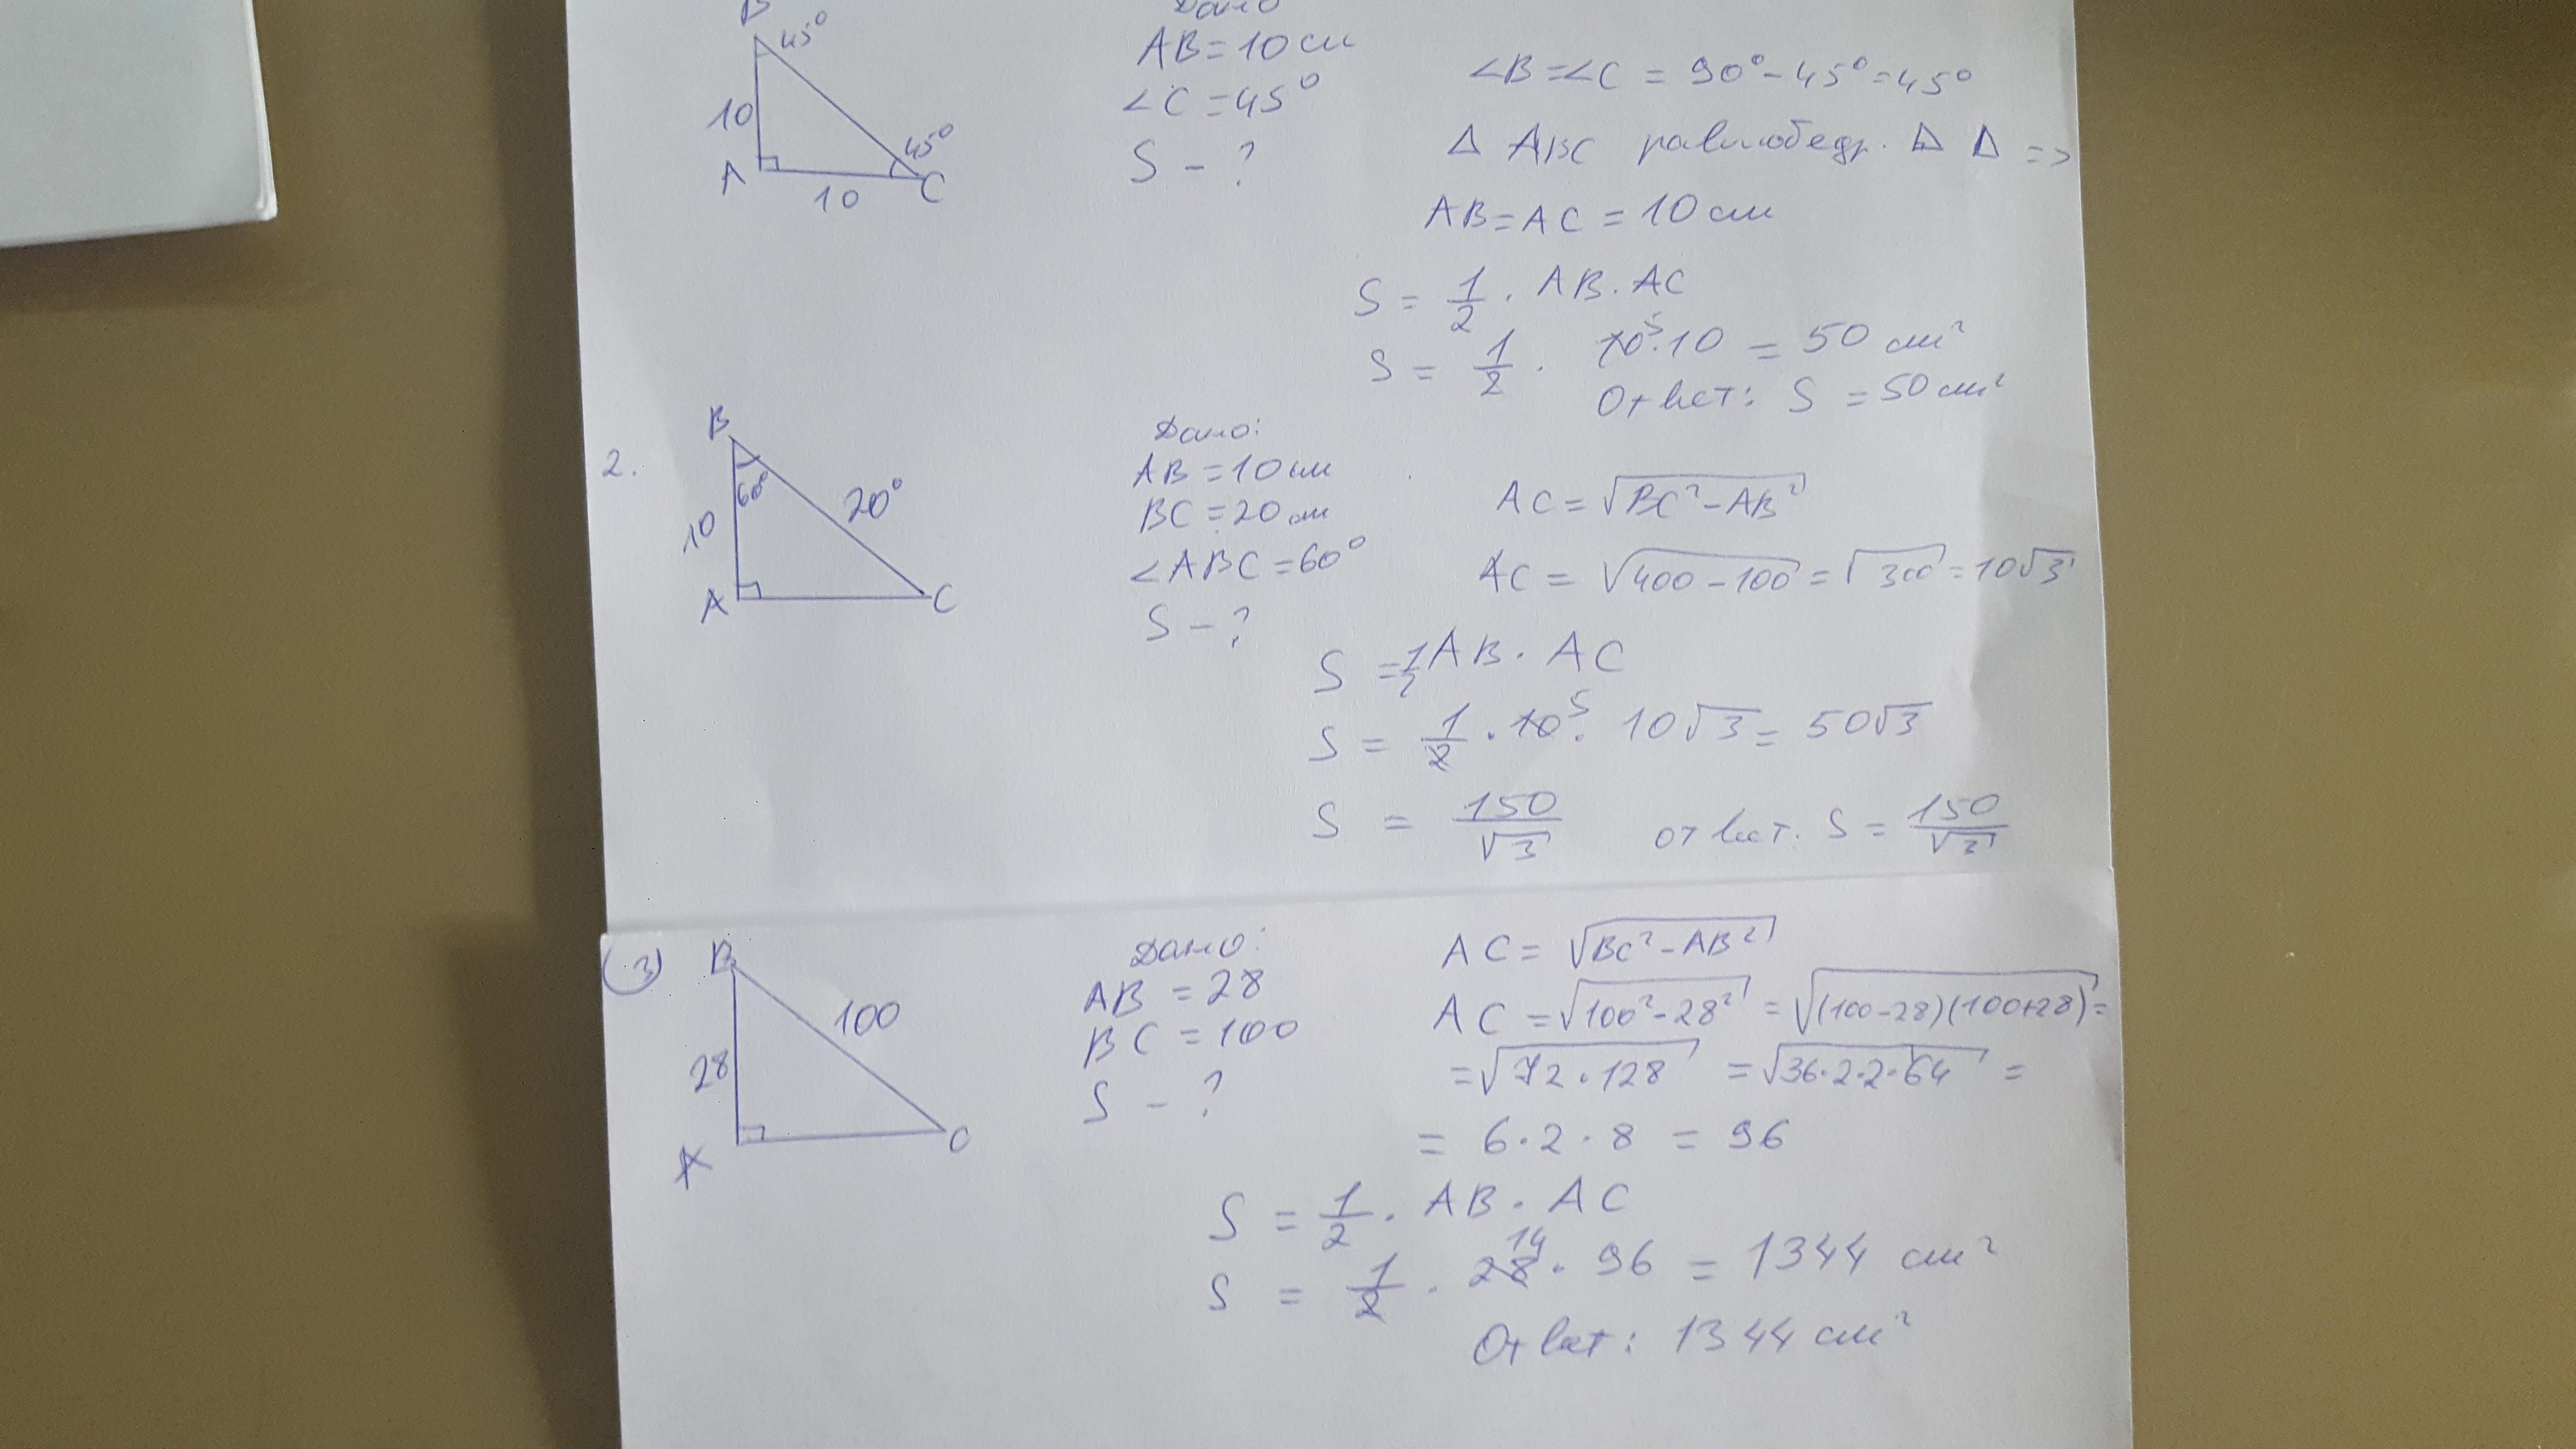 B
45°
10
A
10
45°
C
Дано
AB = 10 см
∠C = 45°
S - ?
∠B = ∠C = 90° - 45° = 45°
Δ ABC равнобедр. Δ Δ =>
AB = AC = 10 см
S = 1/2 · AB · AC
S = 1/2 · 10⁵ · 10 = 50 см²
Ответ: S = 50 см²
2.
B
60°
20°
10
A
C
Дано:
AB = 10 см
BC = 20 см
∠ABC = 60°
S - ?
AC = √(BC² - AB²)
AC = √(400 - 100) = √300 = 10√3
S = 1/2 AB · AC
S = 1/2 · 10⁵ · 10√3 = 50√3
S = 150/√3 ответ: S = 150/√3
3)
B
100
28
A
C
Дано:
AB = 28
BC = 100
S - ?
AC = √(BC² - AB²)
AC = √(100² - 28²) = √((100-28)(100+28)) =
= √(72 · 128) = √(36·2·2·64) =
= 6 · 2 · 8 = 96
S = 1/2 · AB · AC
S = 1/2 · 28 14 · 96 = 1344 см²
Ответ: 1344 см²